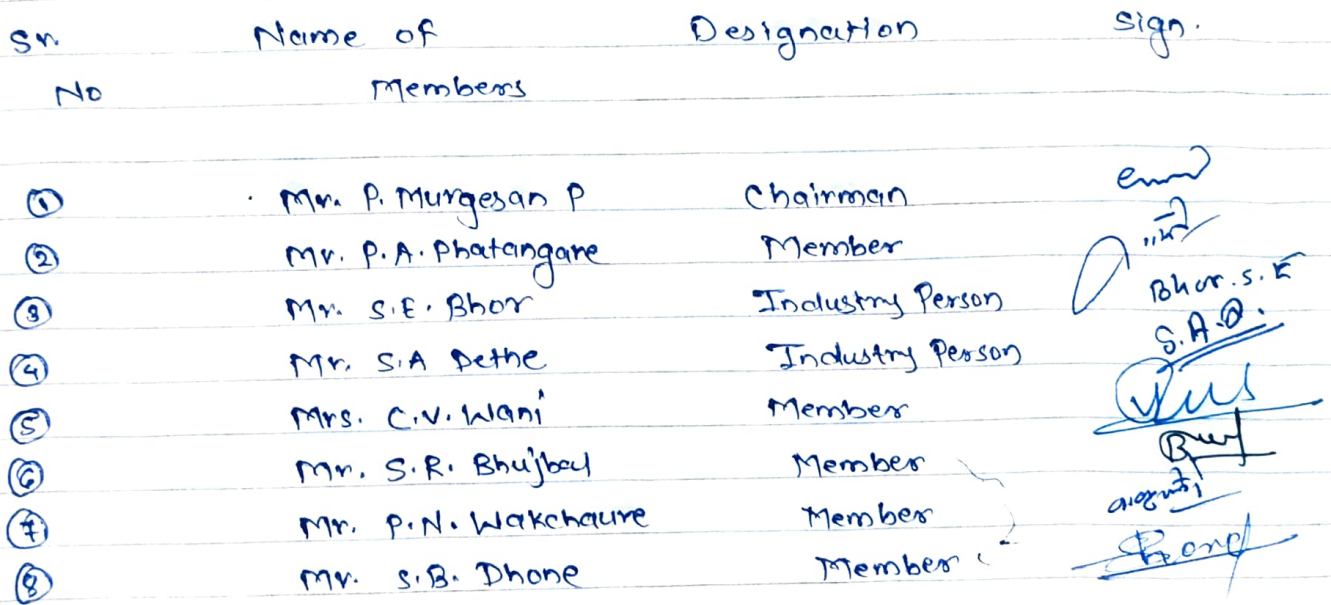 Sr. Name of Designation Sign.
No Members
1 Mr. P. Murgesan P Chairman
2 Mr. P.A. Phatangare Member
3 Mr. S.E. Bhor Industry Person Bhor.S.E
4 Mr. S.A Dethe Industry Person S.A.D.
5 Mrs. C.V. Wani Member
6 Mr. S.R. Bhujbal Member
7 Mr. P.N. Wakchaure Member
8 Mr. S.B. Dhone Member